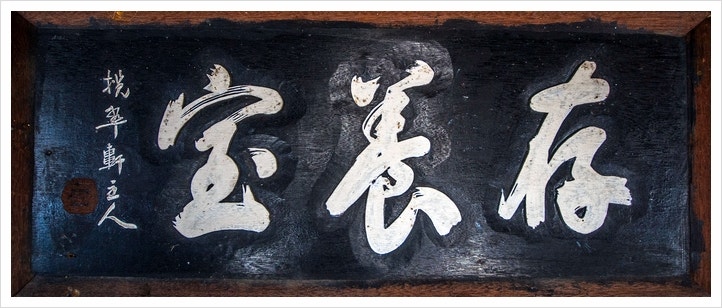 存養室
攬翠軒主人